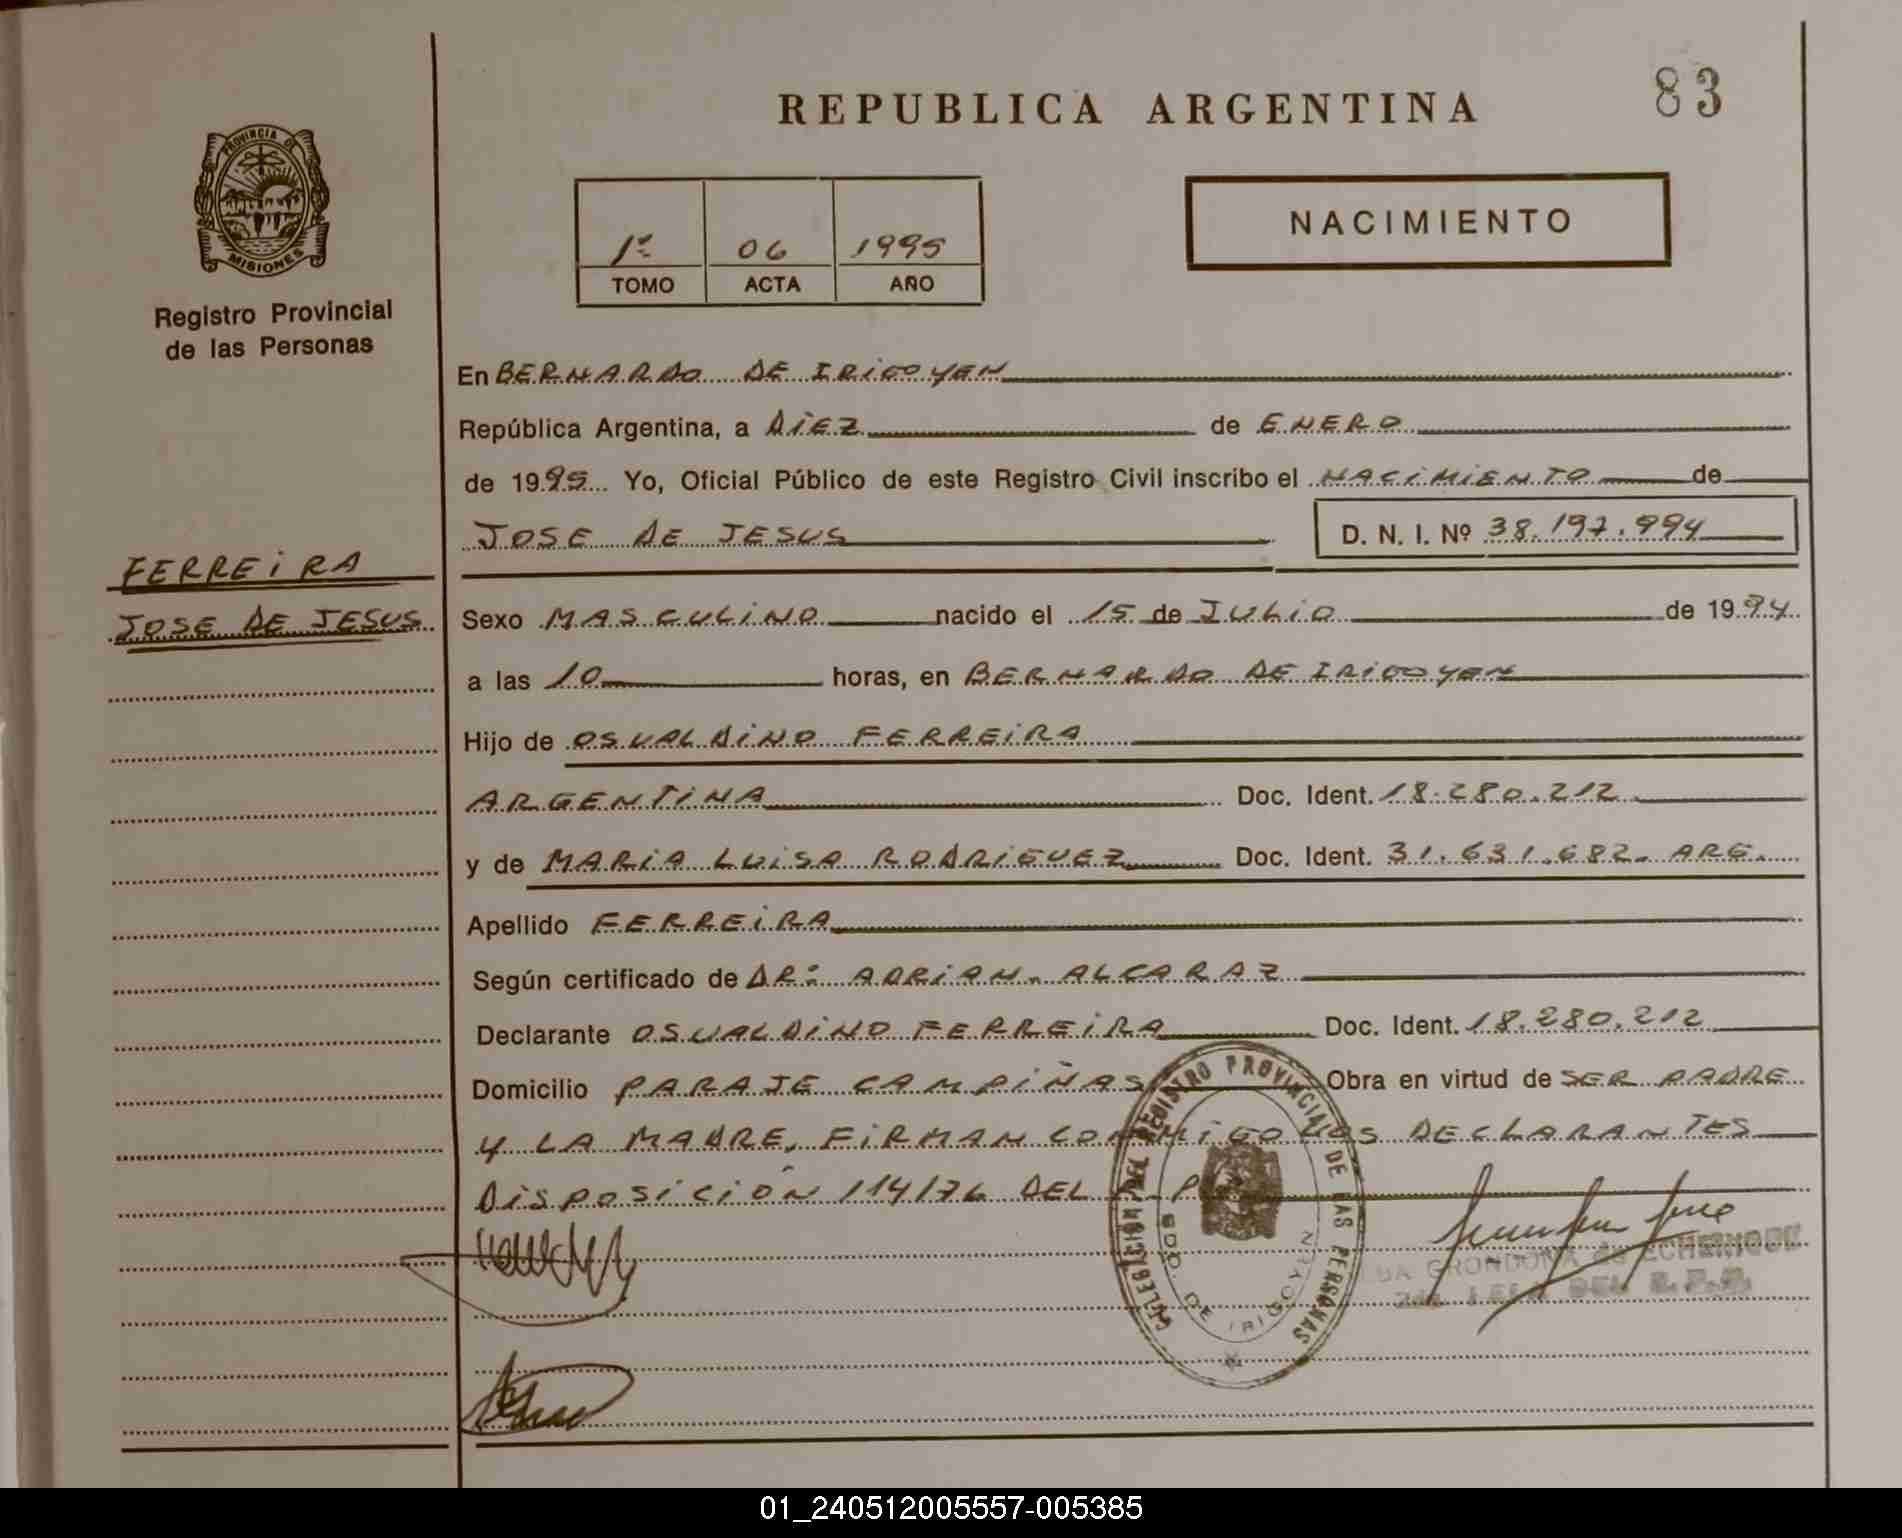 REPUBLICA ARGENTINA
83
PROVINCIA DE
MISIONES
Registro Provincial
de las Personas
1º 06 1995
TOMO ACTA AÑO
NACIMIENTO
En BERNARDO DE IRIGOYEN
República Argentina, a DIEZ de ENERO
de 1995 Yo, Oficial Público de este Registro Civil inscribo el NACIMIENTO de
JOSE DE JESUS D. N. I. Nº 38.197.994
FERREIRA
JOSE DE JESUS
Sexo MASCULINO nacido el 15 de JULIO de 1994
a las 10 horas, en BERNARDO DE IRIGOYEN
Hijo de OSUALDINO FERREIRA
ARGENTINA Doc. Ident. 18.280.212
y de MARIA LUISA RODRIGUEZ Doc. Ident. 31.631.682. ARG.
Apellido FERREIRA
Según certificado de DR: ADRIAN. ALCARAZ
Declarante OSUALDINO FERREIRA Doc. Ident. 18.280.212
Domicilio PARAJE CAMPIÑAS Obra en virtud de SER PADRE
Y LA MADRE, FIRMAN CONMIGO LOS DECLARANTES
DISPOSICIÓN 114/76 DEL
DELEGACION DEL REGISTRO PROVINCIAL DE LAS PERSONAS
BDO. DE IRIGOYEN
GRONDONA de
01_240512005557-005385